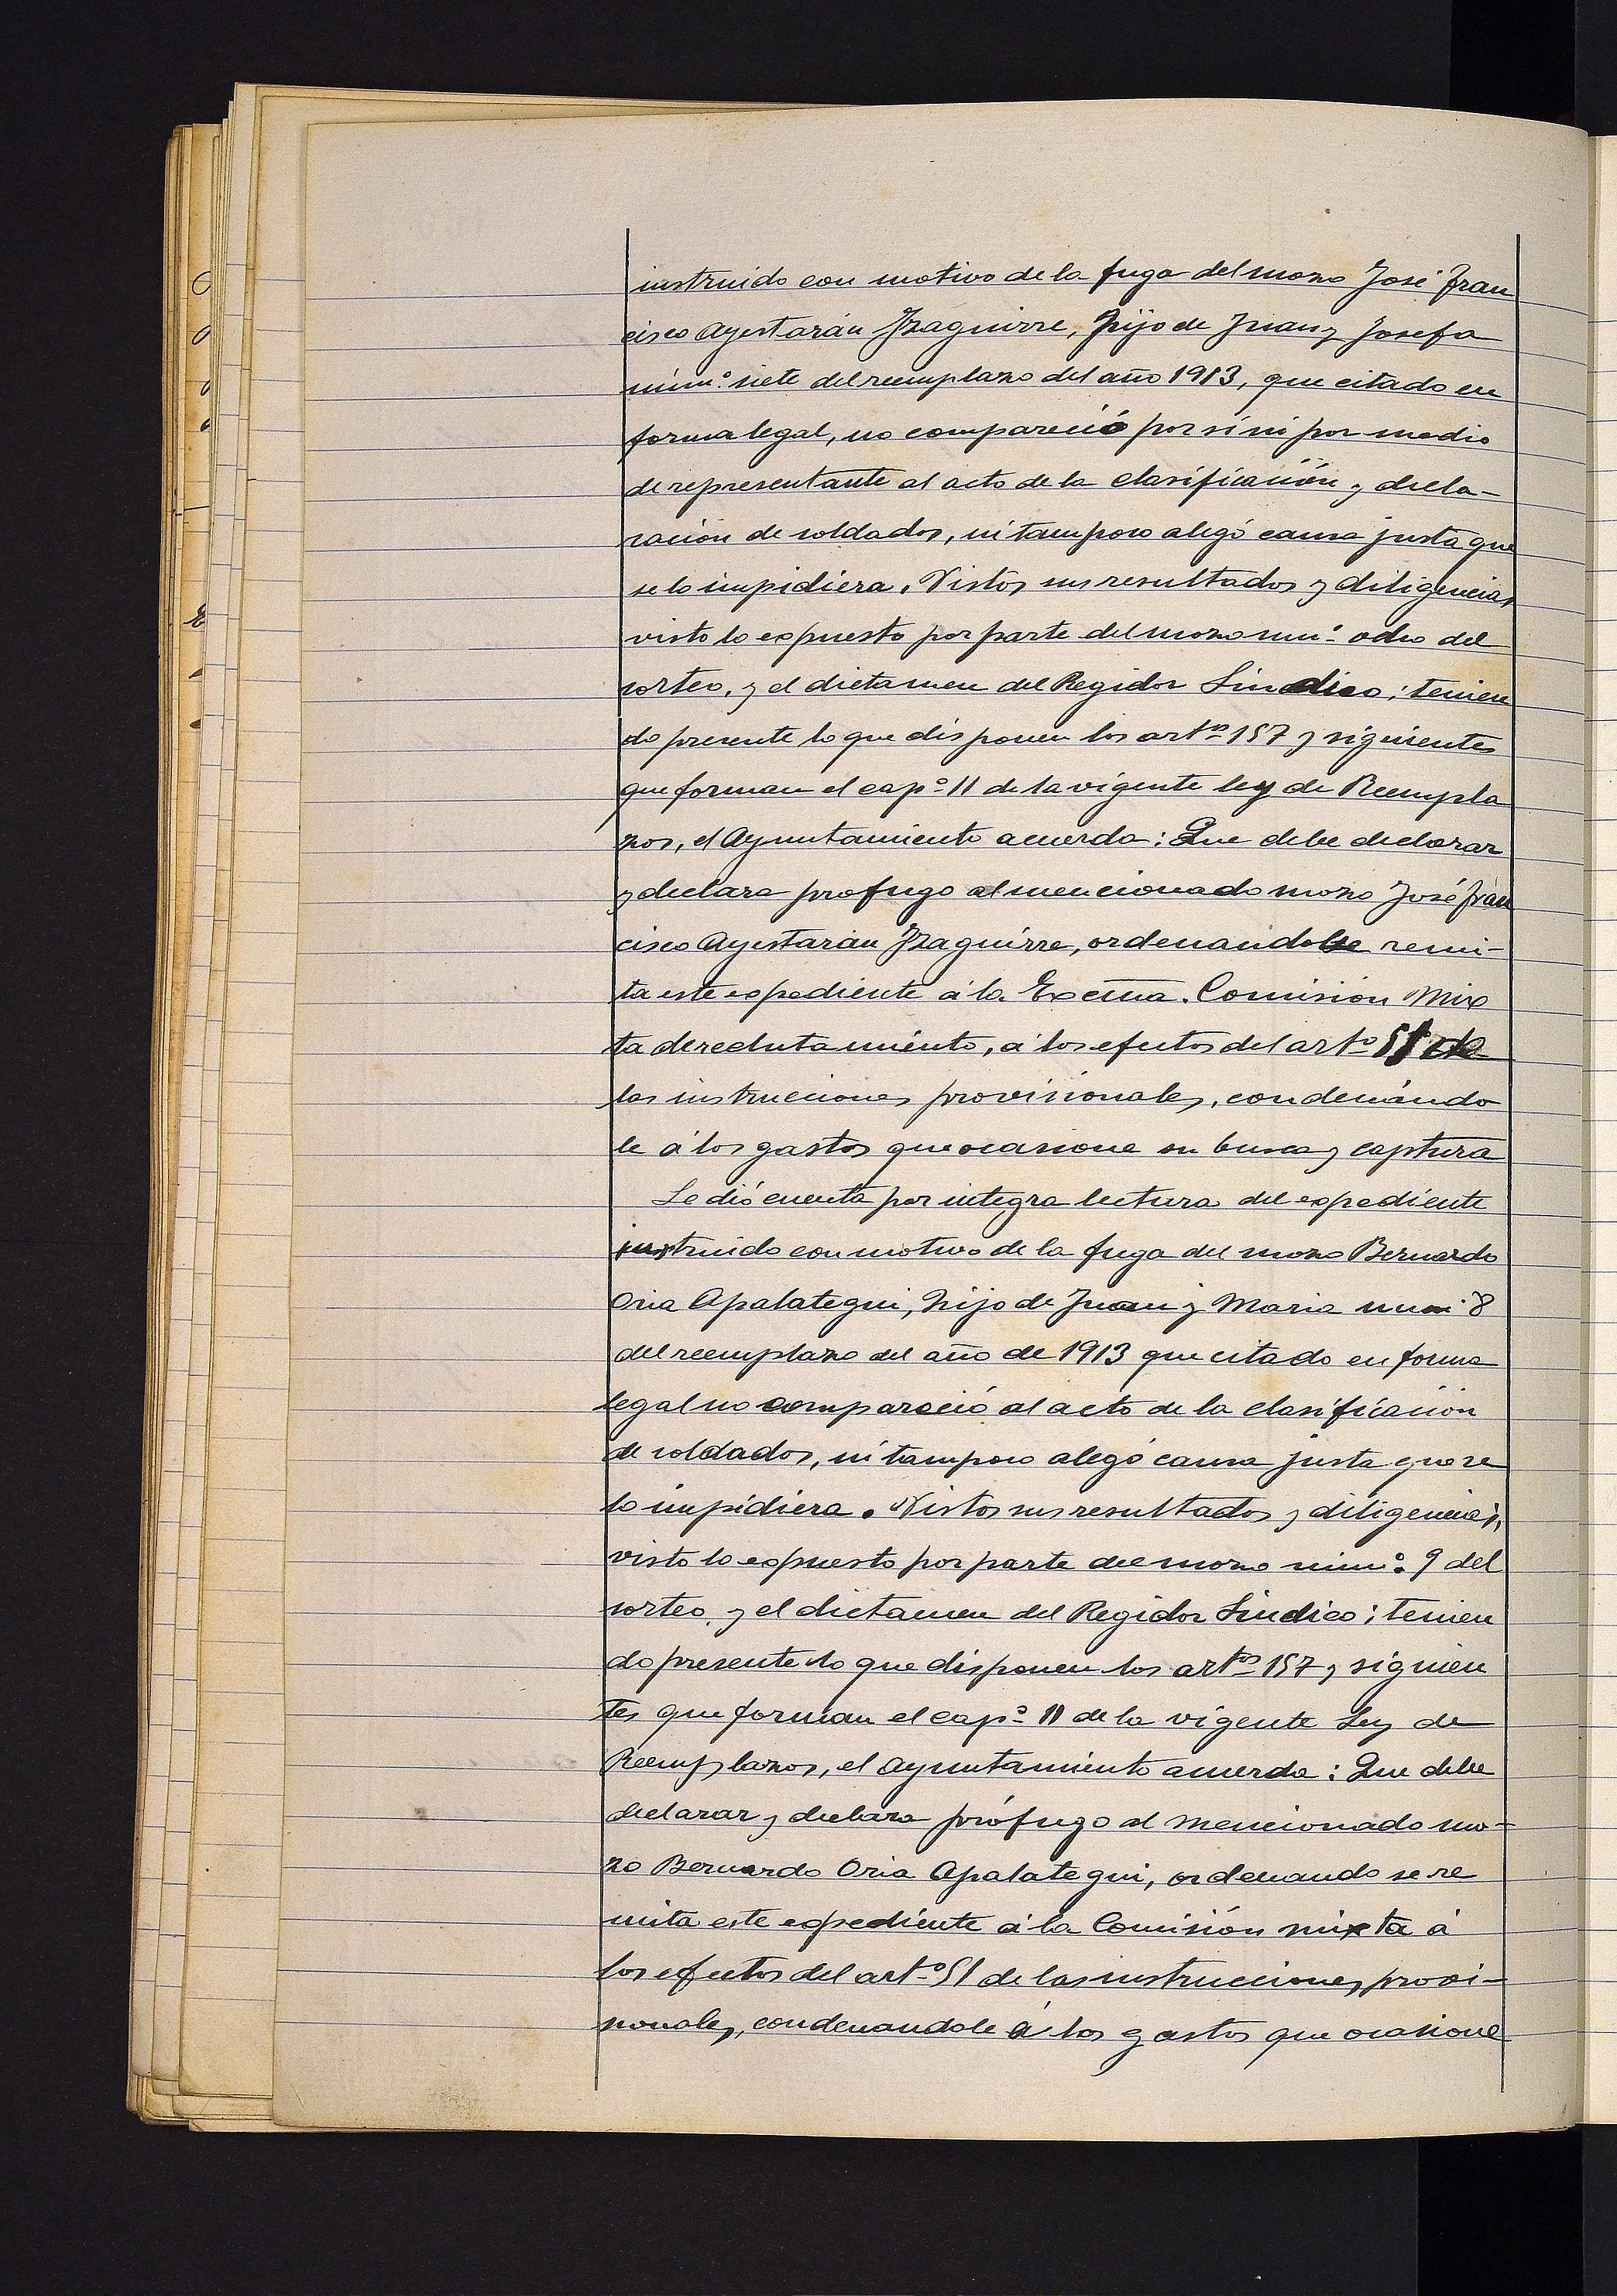 instruido con motivo de la fuga del mozo José Fran
cisco Ayestarán Yzaguirre, hijo de Juan y Josefa
núm.º siete del reemplazo del año 1913, que citado en
forma legal, no compareció por sí ni por medio
de representante al acto de la clasificación y decla-
ración de soldados, ni tampoco alegó causa justa que
se lo impidiera. Vistos sus resultados y diligencias
visto lo expuesto por parte del mozo núº ocho del
sorteo, y el dictamen del Regidor Sindico; tenien
do presente lo que disponen los artºs 157 y siguientes
que forman el capº 11 de la vigente ley de Reempla
zos, el Ayuntamiento acuerda: Que debe declarar
y declara profugo al mencionado mozo José Fran
cisco Ayestarán Yzaguirre, ordenandose remi-
ta este expediente á la Excma. Comision Mix
ta de reclutamiento, á los efectos del artº 51 de
las instrucciones provisionales, condenándo
le á los gastos que ocasione su busca y captura
Se dió cuenta por integra lectura del expediente
instruido con motivo de la fuga del mozo Bernardo
Oria Apalategui, hijo de Juan y Maria num 8
del reemplazo del año de 1913 que citado en forma
legal no compareció al acto de la clasificación
de soldados, ni tampoco alegó causa justa que se
lo impidiera. Vistos sus resultados y diligencias,
visto lo expuesto por parte del mozo núm.º 9 del
sorteo, y el dictamen del Regidor Sindico; tenien
do presente lo que disponen los artºs 157 y siguien
tes que forman el capº 11 de la vigente Ley de
Reemplazos, el Ayuntamiento acuerda: Que debe
declarar y declara prófugo al mencionado mo-
zo Bernardo Oria Apalategui, ordenando se re
mita este expediente á la Comisión mixta á
los efectos del artº 51 de las instrucciones provi-
sionales, condenandole á los gastos que ocasione